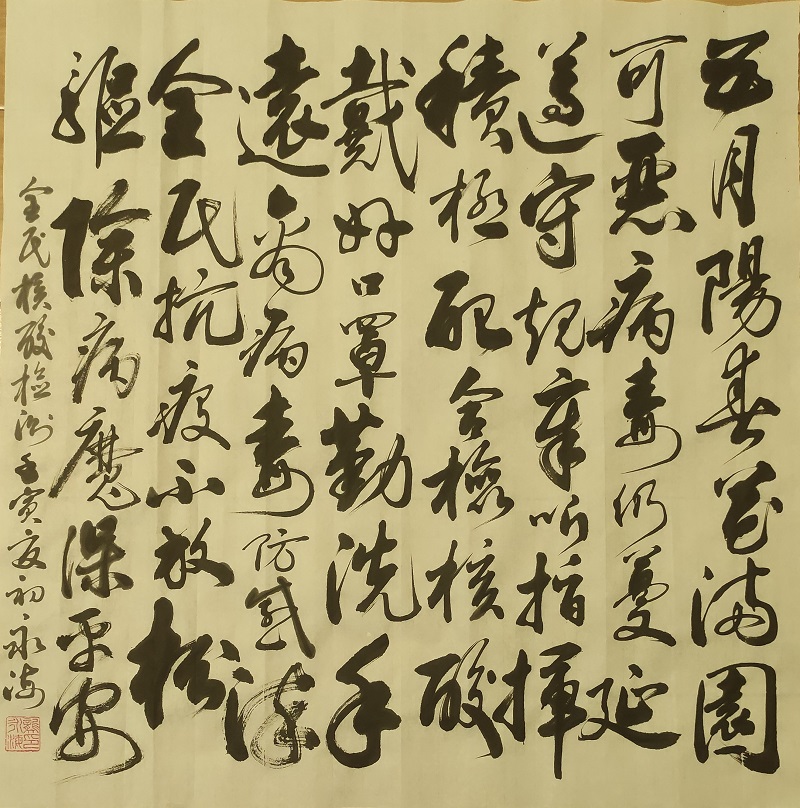 五月陽春花满園
可恶病毒仍蔓延
遵守规章听指揮
積極配合檢核酸
戴好口罩勤洗手
遠离病毒防感染
全民抗疫不放松
驅除病魔保平安
全民核酸檢測壬寅夏初永海